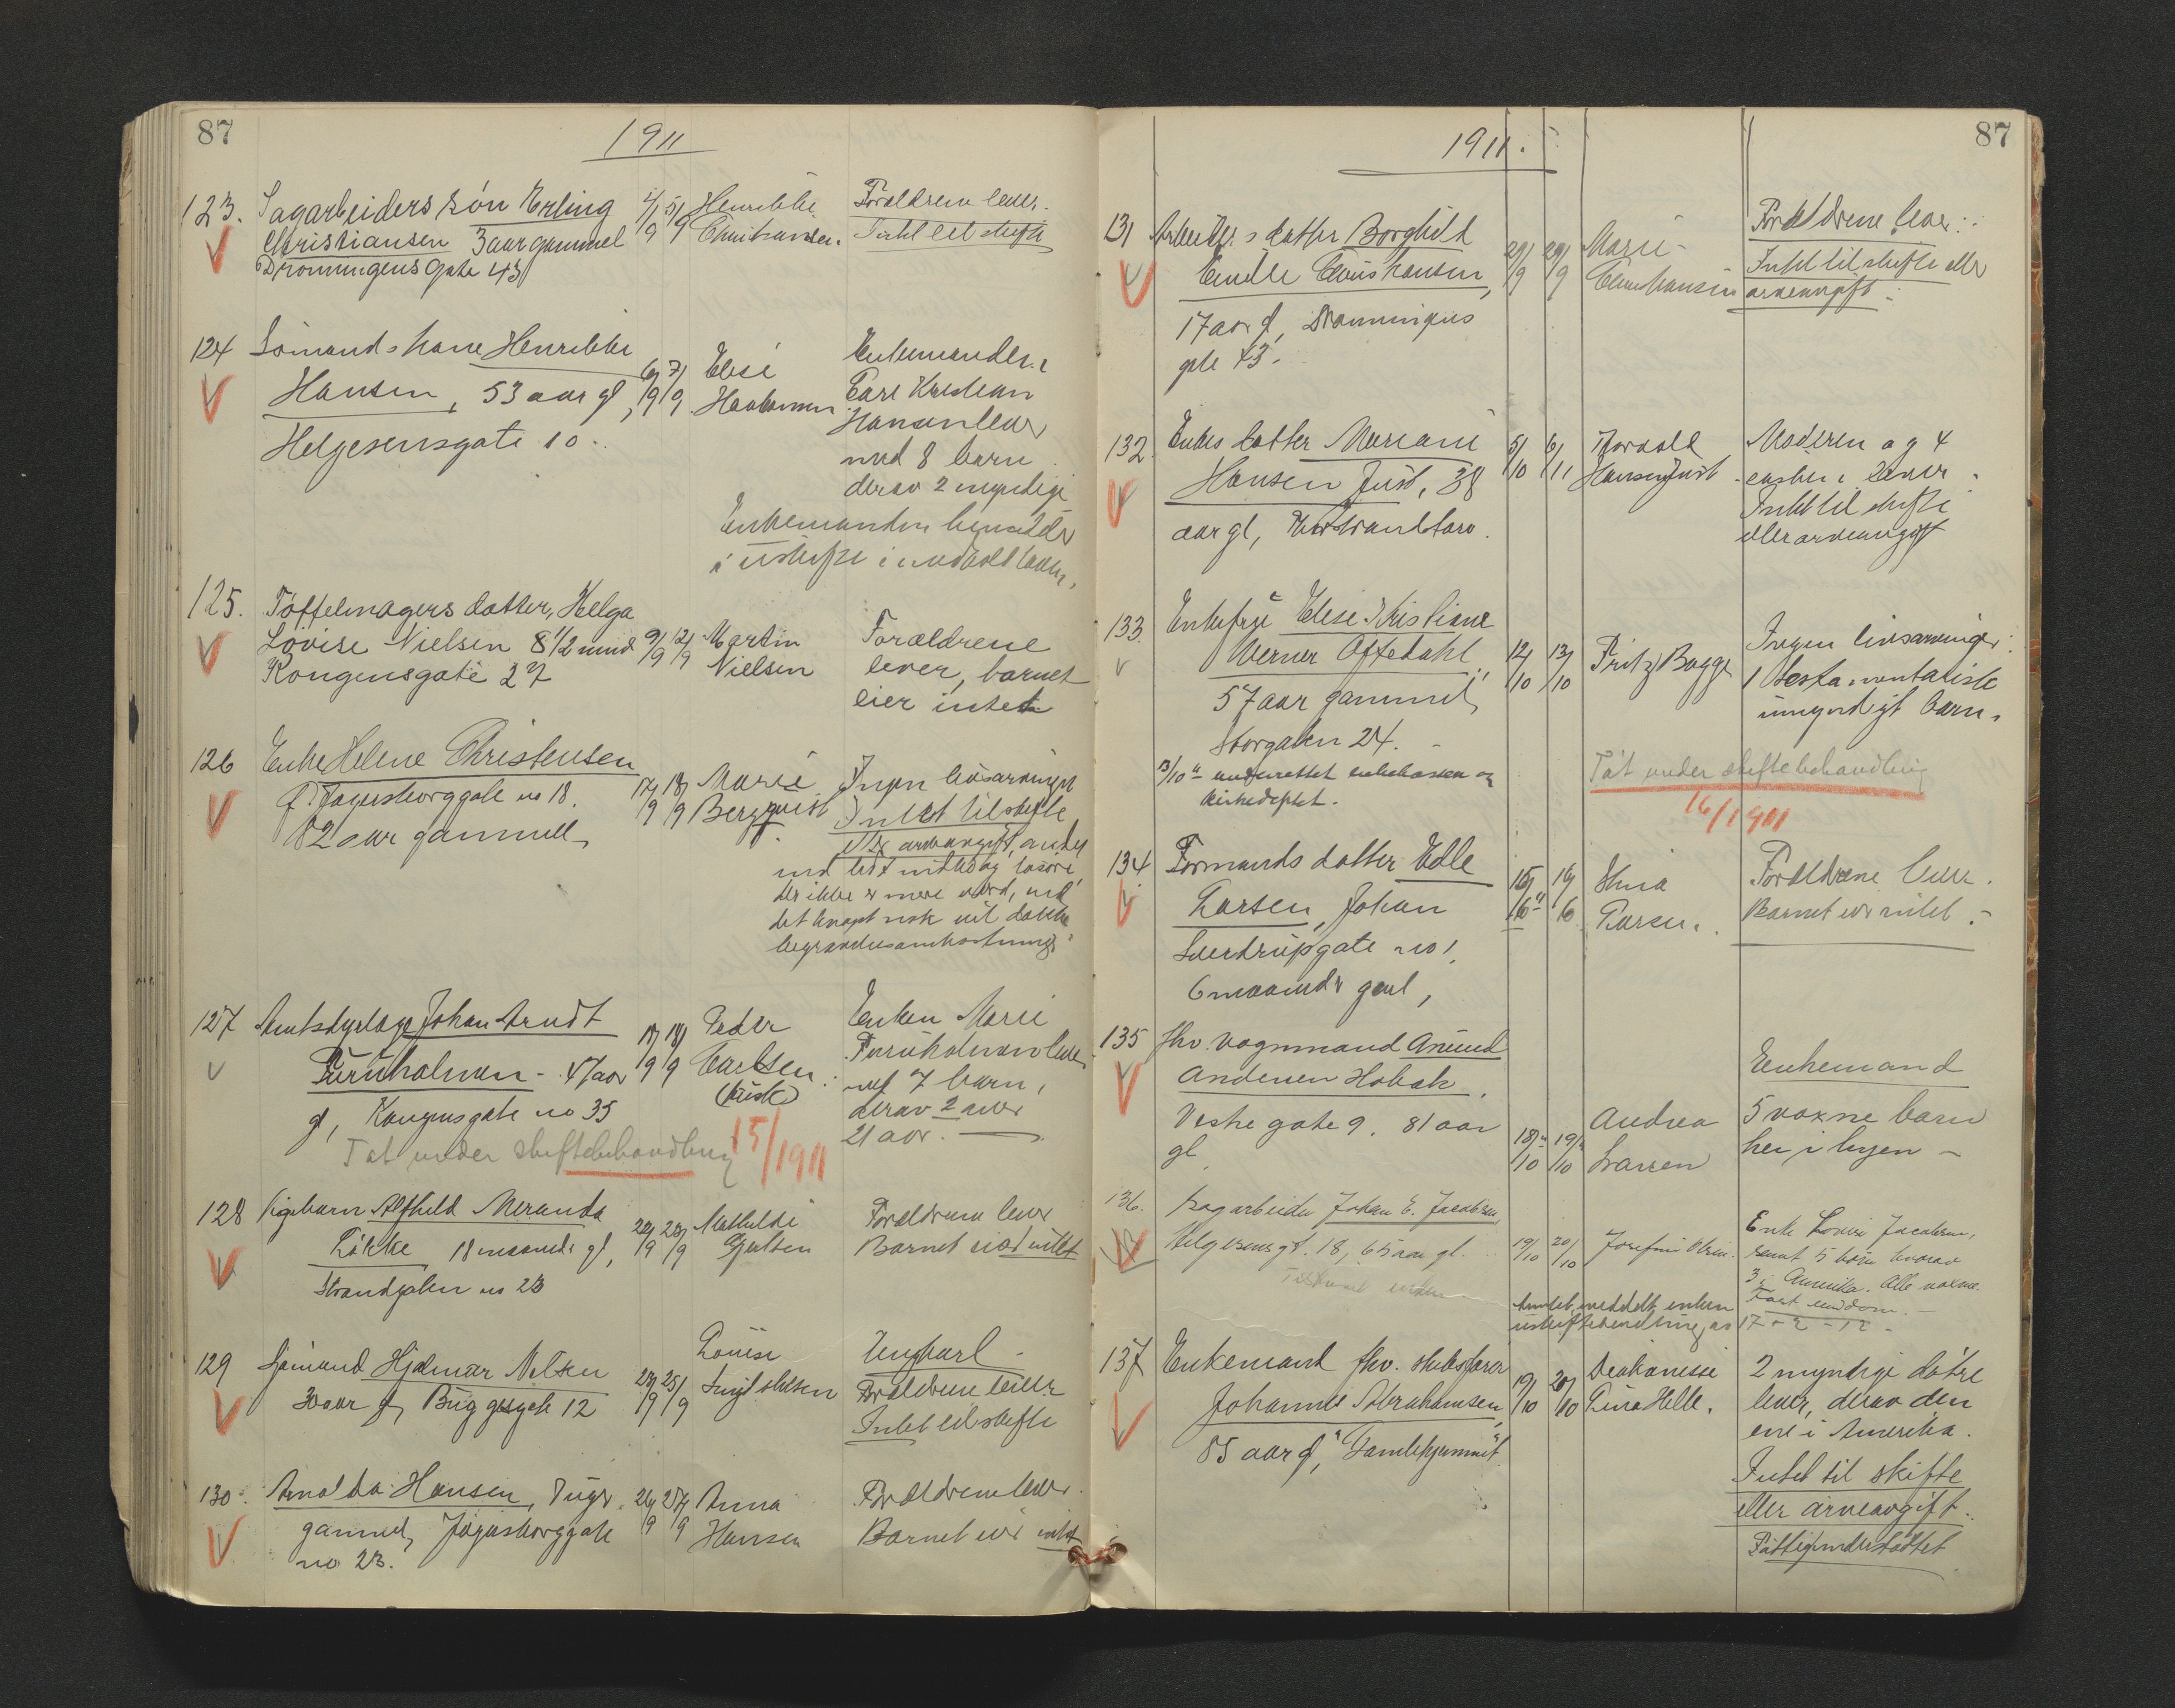 87
1911
123. Sagarbeiders søn Erling
Christiansen 3 aar gammel
Dronningens Gate 43
4/9 5/9
Henrikke
Christiansen.
Forældrene lever.
Intet til skifte
124 Sømands kone Henrikke
Hansen, 53 aar gl,
Helgesensgate 10.
6/9 7/9
Elise
Haakonsen
Enkemanden
Carl Kristian
Hansen lever
med 8 barn
derav 2 myndige
Enkemanden hensidder
i uskiftet i henhold til loven.
125. Tøffelmagers datter, Helga
Lovise Nielsen 8 1/2 mnd
Kongensgate 27
9/9 12/9
Martin
Nielsen
Forældrene
lever, barnet
eier intet
126 Enke Helene Christensen
Fagersborggate no 18
82 aar gammel
17/9 18/9
Marie
Bergquist
Ingen livsarvinger
Intet til skifte
eller arveavgift, andet
end lidt indbo og løsøre,
der ikke er mere værd, end
det knapt nok vil dække
begravelsesomkostninger
127 Amtsdyrlæge Johan Arndt
Furuholmen - 47 aar
gl, Kongensgate no 35
17/9 18/9
Peder
Carlsen
(Rusk)
Enken Marie
Furuholmen lever
med 7 barn,
derav 2 over
21 aar.
Tat under skiftebehandling 15/1911
128 Pigebarn Alfhild Meranda
Løkke 18 maander gl,
Strandgaten no 23
22/9 23/9
Mathilde
Gjertsen
Forældrene lever
Barnet eied intet
129 Sjømand Hjalmar Nilsen
30 aar gl, Buggesgate 12
23/9 25/9
Louise
Nilsen
Ungkarl
Forældrene lever
Intet til skifte
130. Arnolda Hansen, 7 uger
gammel, Fagersborggate
no 23.
26/9 27/9
Anna
Hansen
Forældrene lever.
Barnet eier intet
1911.
87
131 Arbeiders datter Borghild
Emilie Claushansen,
17 aar gl, Dronningens
gate 43.
29/9 29/9
Marie
Claushansen
Forældrene lever.
Intet til skifte eller
arveavgift.
132. Enkes datter Mariane
Hansen Just, 38
aar gl,
5/10 6/11
Thorvald
Hansen Just
Moderen og 4
søsken lever
Intet til skifte
eller arveavgift
133. Enkefru Elise Kristiane
Werner Oftedahl,
57 aar gammel,
Storgaten 24.
12/10 13/10
Fritz Bugge
Ingen livsarvinger.
1 testamentarisk
umyndigt barn.
13/10 11 underrettet enkekassen og
kirkedeptet.
Tat under skiftebehandling
16/1911
134 Formands datter Edle
Larsen, Johan
Sverdrupgate no 1,
6 maaneder gml,
15/10 16/10
Larsen.
Forældrene lever.
Barnet eier intet.
135 fhv. vognmand Anund
Andersen Hobæk.
Vestre gate 9. 81 aar
gl
18/10 19/10
Andrea
Larsen
Enkemand
5 voxne barn
her i byen
136. Sagarbeider Johan E. Jacobsen
Helgesensgt. 18, 65 aar gl.
19/10 20/10
Josefine Olsen.
Enke Lovise Jacobsen,
samt 5 børn hvorav
3 i Amerika. Alle voxne.
Fast eiendom.
Amtet meddelt enken
uskiftebevilling av 17-2-12
137 Enkemand fhv. skibsfører
Johannes Abrahamsen,
85 aar gl, "Gamlehjemmet"
19/10 20/10
Diakonisse
Tina Helle.
2 myndige døtre
lever, derav den
ene i Amerika.
Intet til skifte
eller arveavgift.
Fattigunderstøttet